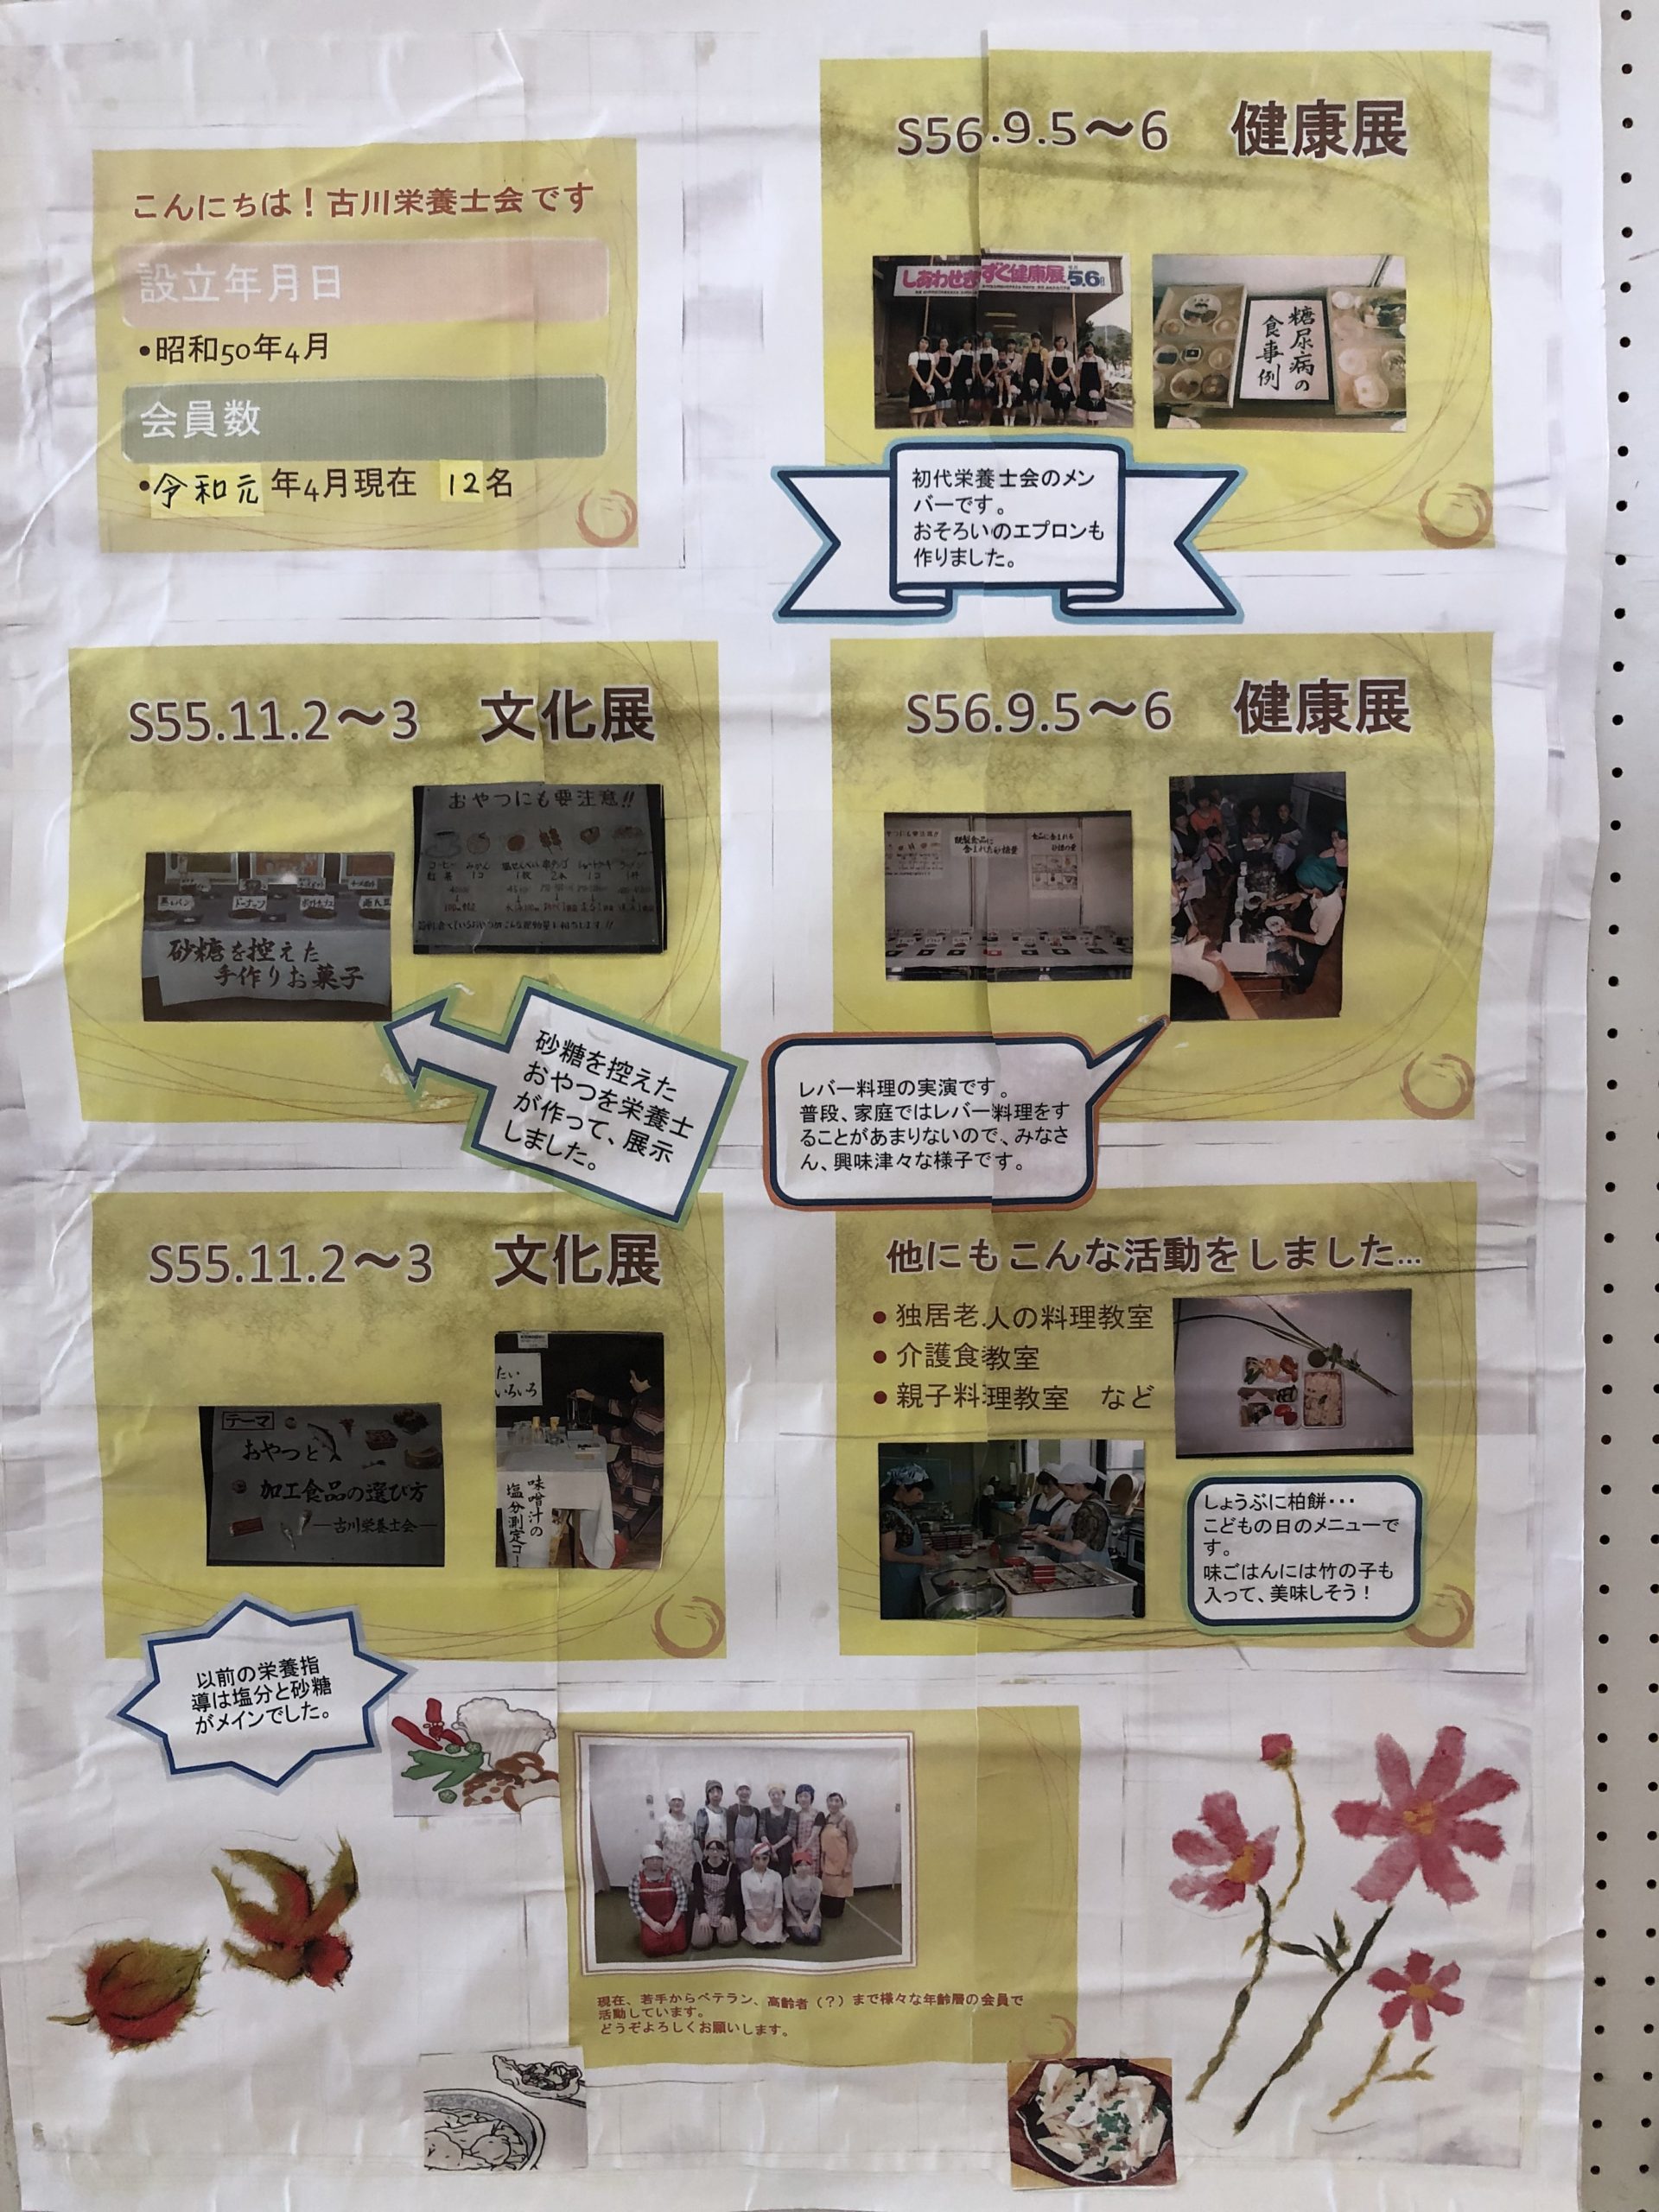 こんにちは！古川栄養士会です
設立年月日
•昭和50年4月
会員数
•令和元年4月現在 12名
S56.9.5～6 健康展
しあわせきずく健康展
5.6
糖尿病の
食事例
初代栄養士会のメン
バーです。
おそろいのエプロンも
作りました。
S55.11.2～3 文化展
おやつにも要注意!!
コーヒー
紅茶
みかん
1コ
ドーナツ
砂糖を控えた
手作りお菓子
砂糖を控えた
おやつを栄養士
が作って、展示
しました。
S56.9.5～6 健康展
既製食品に
含まれた砂糖量
食品に含まれる
レバー料理の実演です。
普段、家庭ではレバー料理をす
ることがあまりないので、みなさ
ん、興味津々な様子です。
S55.11.2～3 文化展
テーマ
おやつと
加工食品の選び方
―古川栄養士会―
たい
いろいろ
味噌汁の
塩分測定コー
以前の栄養指
導は塩分と砂糖
がメインでした。
他にもこんな活動をしました…
●独居老人の料理教室
●介護食教室
●親子料理教室 など
しょうぶに柏餅・・・
こどもの日のメニューで
す。
味ごはんには竹の子も
入って、美味しそう！
現在、若手からベテラン、高齢者（？）まで様々な年齢層の会員で
活動しています。
どうぞよろしくお願いします。